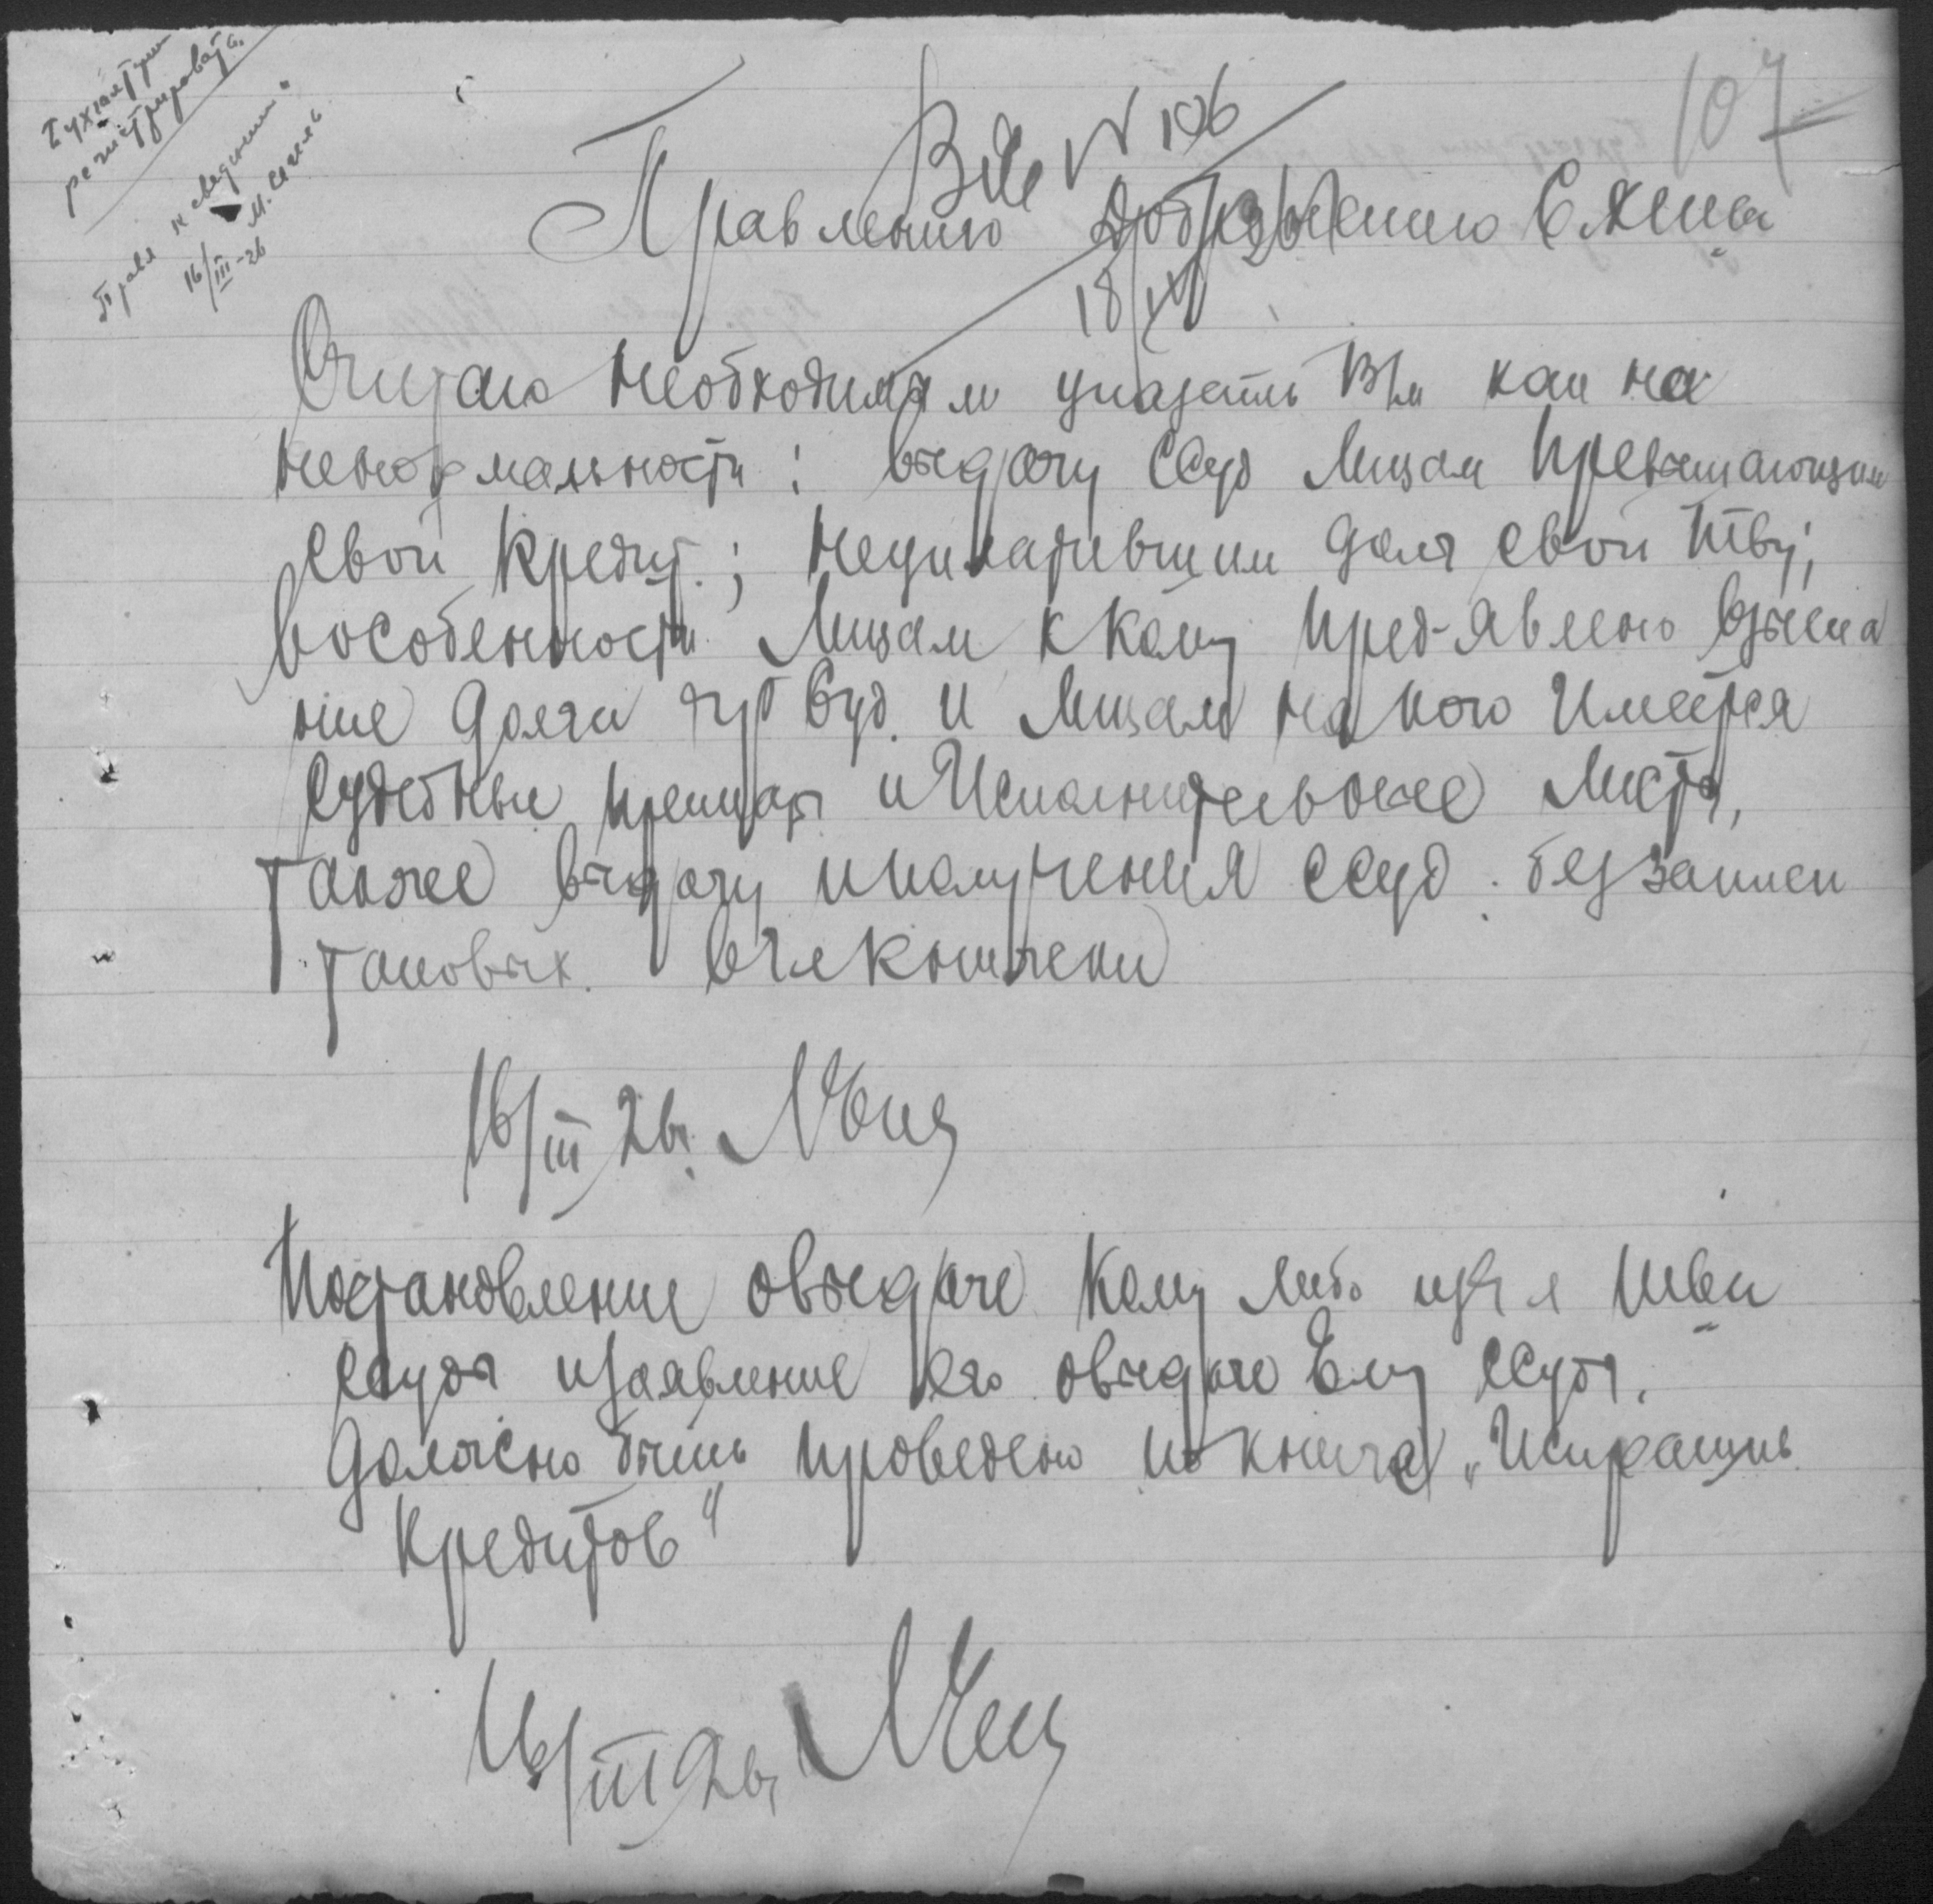 Бухгалтрии
регистрировать.
Правл к сведению
16/III-26
107
Вх № 106
18/III
Правлению
Считаю необходимым указать Вам как на
ненормальности: выдачу ссуд лицам превышающим
свой кредит; неуплатившим долг свой Тву;
в особенности лицам к кому пред-явлено взыска
ние долга суд. и лицам на кого имеется
судебные приказы и исполнительные листы,
также выдачу и получения ссуд. без записи
таковых. в чл книжки
16/III 26г.
Постановление о выдаче кому либо из чл
ссуды и заявление его о выдаче ему ссуды,
должно быть проведено по книге „Испрашив
кредитов"
16/III 26г